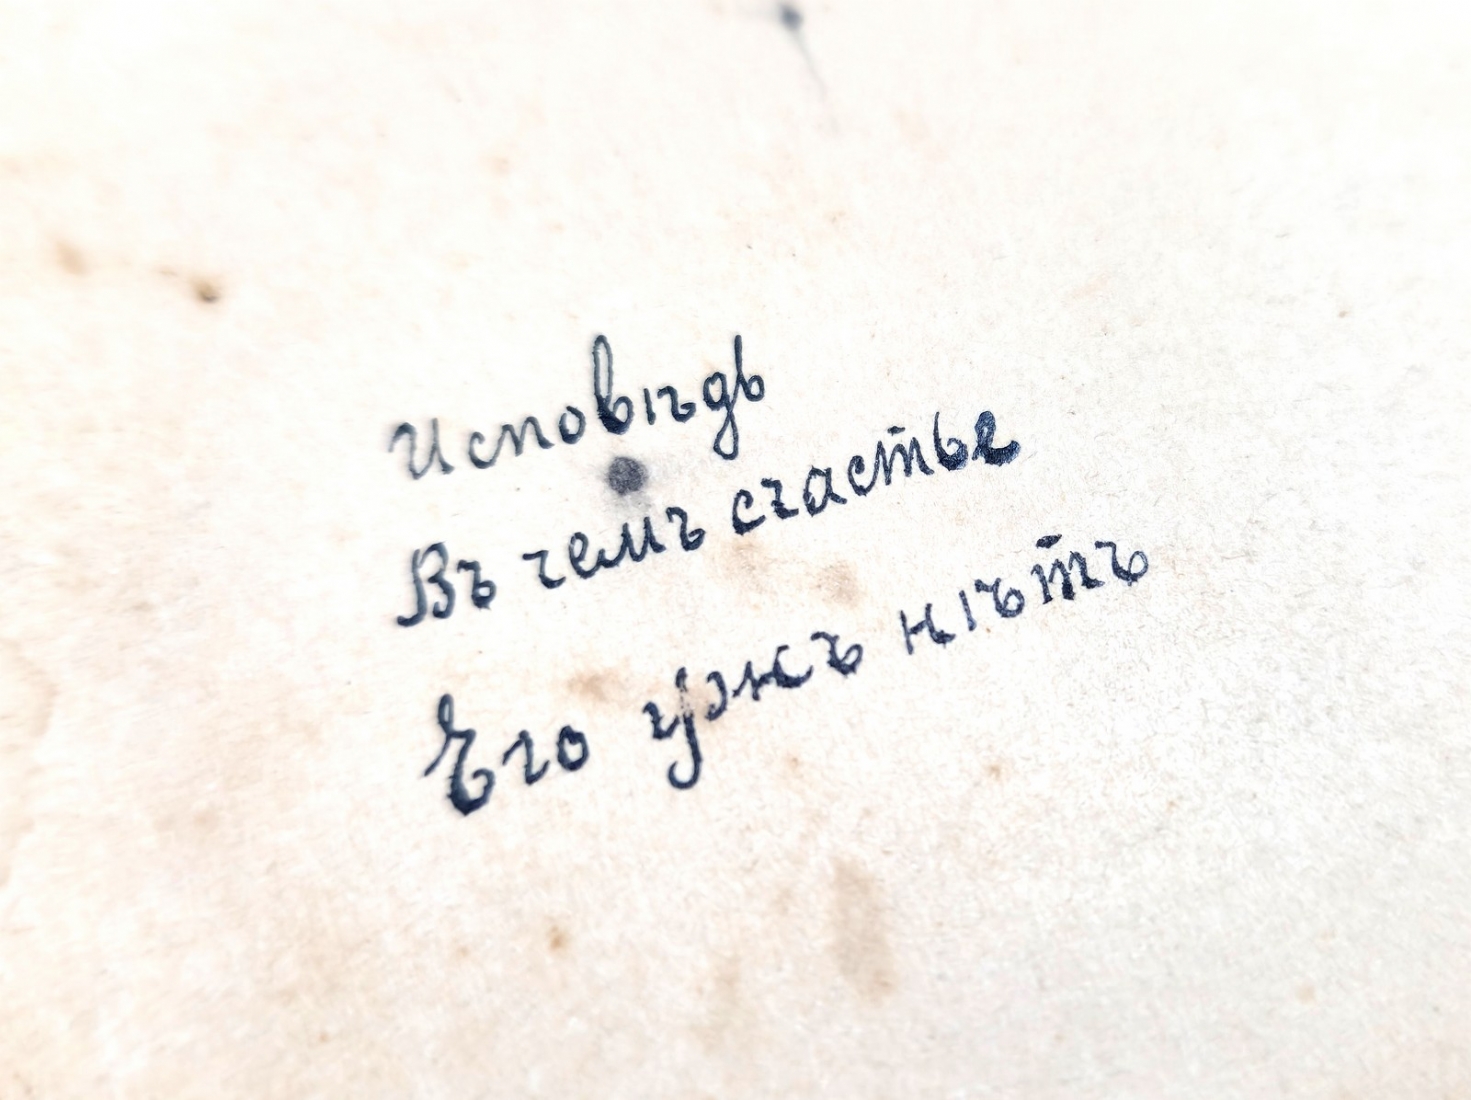 Исповѣдь
Въ чемъ счастье
Его ужъ нѣтъ